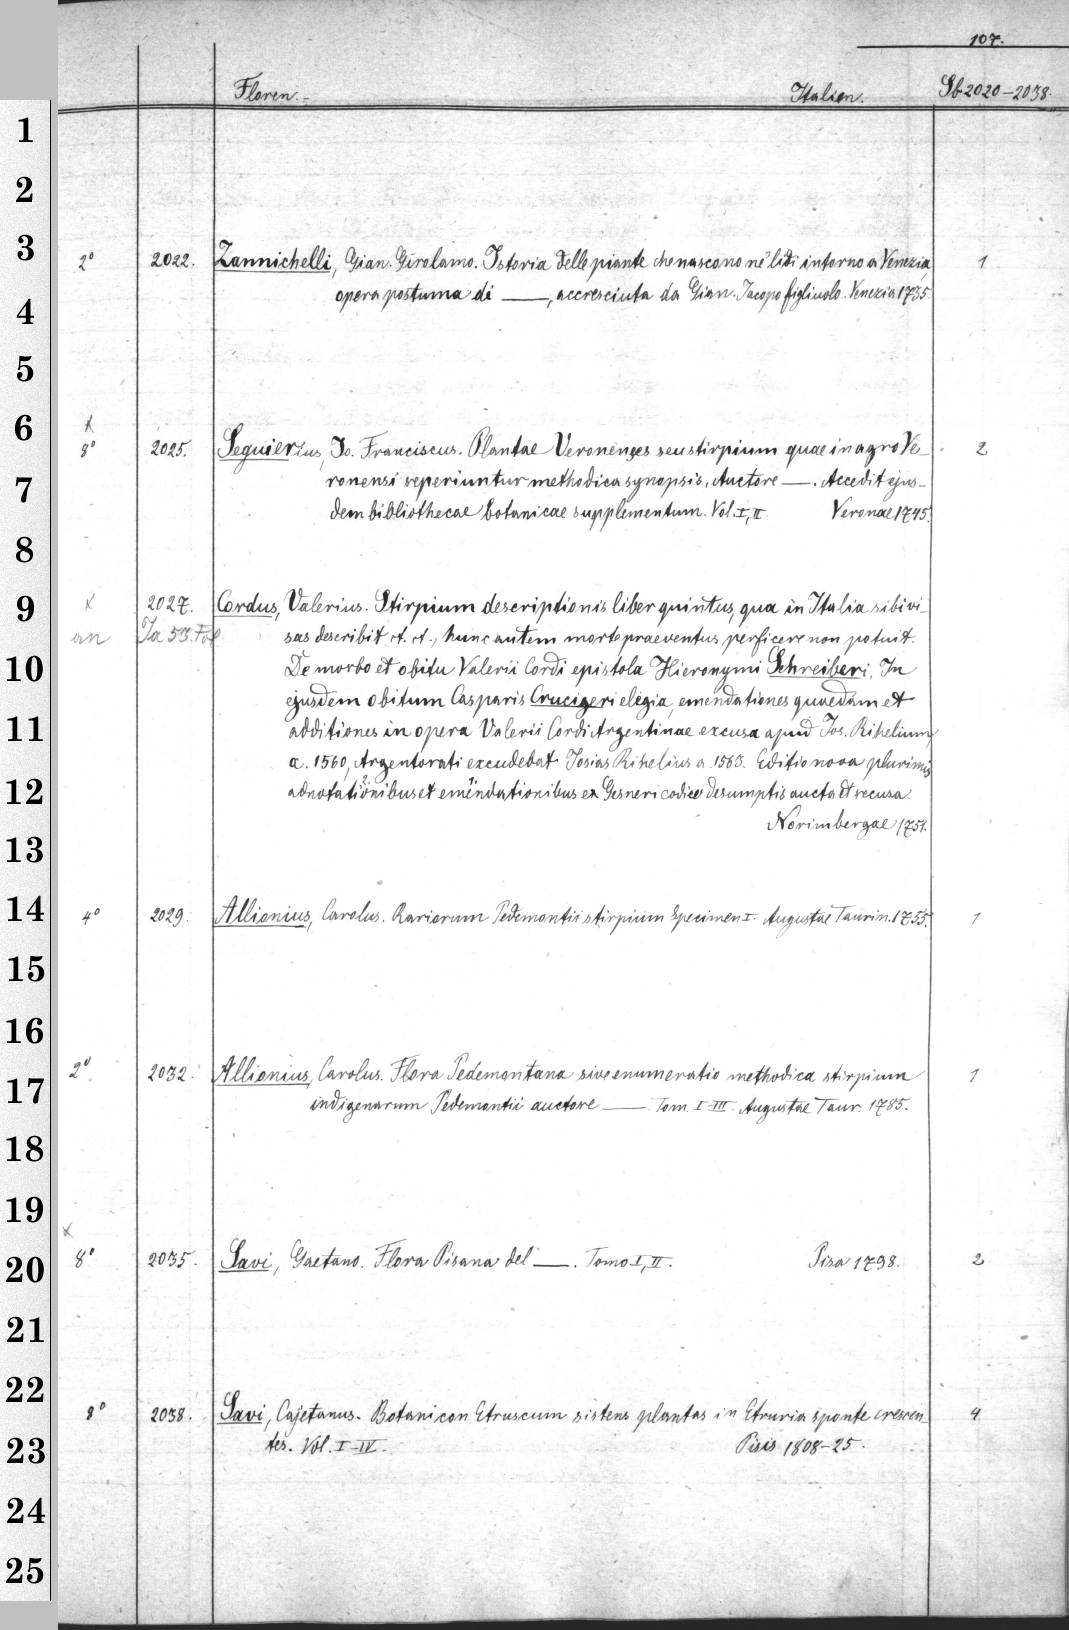 107.
Floren. Italien. Sb 2020-2038.
1
2
3
2° 2022. Zannichelli, Gian. Girolamo. Istoria delle piante che nascono ne' lidi intorno a Venezia
4
opera postuma di ——, accresciuta da Gian. Jacopo figliuolo. Venezia 1735. 1
5
6
x
8° 2025. Seguierius, Jo. Franciscus. Plantae Veronenses seu stirpium quae in agro Ve- 2
7
ronensi reperiuntur methodica synopsis. Auctore ——. Accedit ejus-
dem bibliothecae botanicae supplementum. Vol. I, II. Veronae 1745.
8
9
x 2027. Cordus, Valerius. Stirpium descriptionis liber quintus, qua in Italia sibi vi-
an Ia 53. Fol. sas describit et. et., hunc autem morte praeventus perficere non potuit.
10
De morbo et obitu Valerii Cordi epistola Hieronymi Schreiberi. In
ejusdem obitum Casparis Crucigeri elegia, emendationes quaedam et
11
additiones in opera Valerii Cordi Argentinae excusa apud Jos. Rihelium,
a. 1560, Argentorati excudebat Josias Rihelius a. 1563. Editio nova plurimis
12
adnotationibus et emendationibus ex Gesneri codice desumptis aucta et recusa.
Norimbergae 1751.
13
14
4° 2029. Allionius, Carolus. Rariorum Pedemontii stirpium Specimen I. Augustae Taurin. 1755. 1
15
16
17
2° 2032. Allionius, Carolus. Flora Pedemontana sive enumeratio methodica stirpium 1
indigenarum Pedemontii auctore —— Tom. I-III. Augustae Taur. 1785.
18
19
x
20
8° 2035. Savi, Gaetano. Flora Pisana del ——. Tomo I, II. Pisa 1798. 2
21
22
8° 2038. Savi, Cajetanus. Botanicon Etruscum sistens plantas in Etruria sponte crescen- 4
23
tes. Vol. I-IV. Pisis 1808-25.
24
25